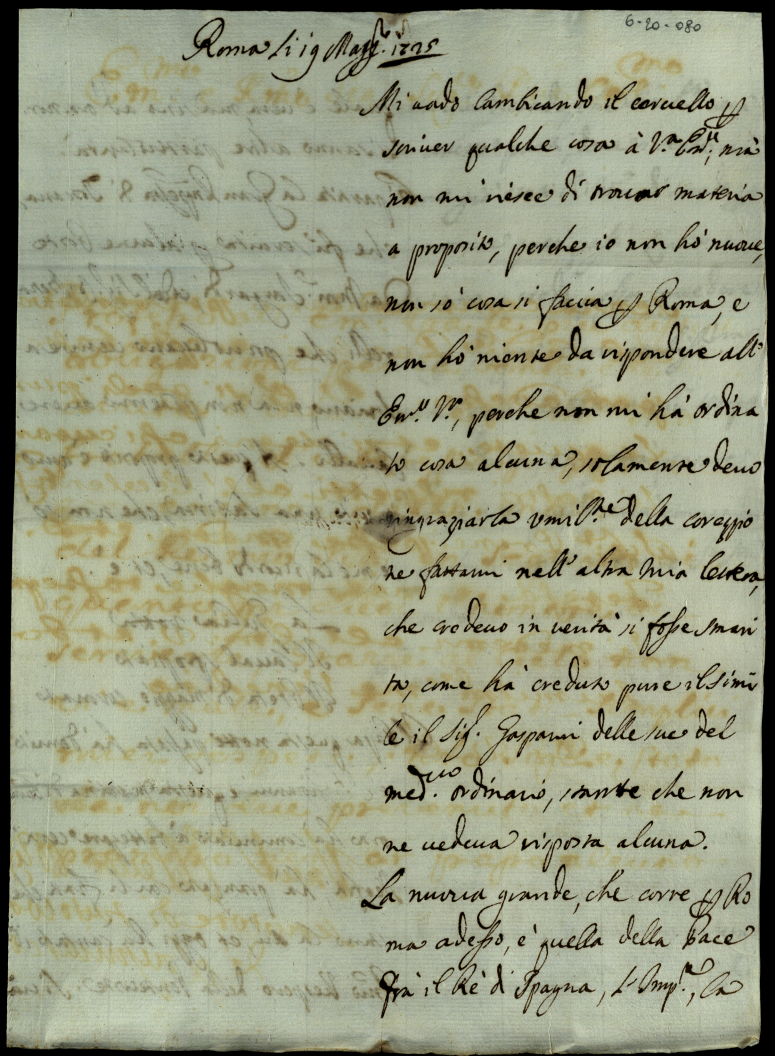 6-20-080
Roma li 19 Magg. 1725
Mi vado lambicando il ceruello p
scriuer qualche cosa à V.a Em.; mà
non mi riesce di trouar materia
a proposito, perche io non hò nuoue,
non sò cosa si faccia p Roma, e
non hò niente da rispondere all'
Em. V., perche non mi hà ordina
to cosa alcuna, solamente deuo
ringraziarla vmil.te della correzzio
ne fattami nell'altra mia lettera,
che credeuo in verità si fosse smari
ta, come hà creduto pure il simi
le il Sig. Gasparri delle sue del
med.mo ordinario, stante che non
ne uedeua risposta alcuna.
La nuova grande, che corre p Ro
ma adesso, è quella della Pace
frà il Rè di Spagna, L'Imp.re, la